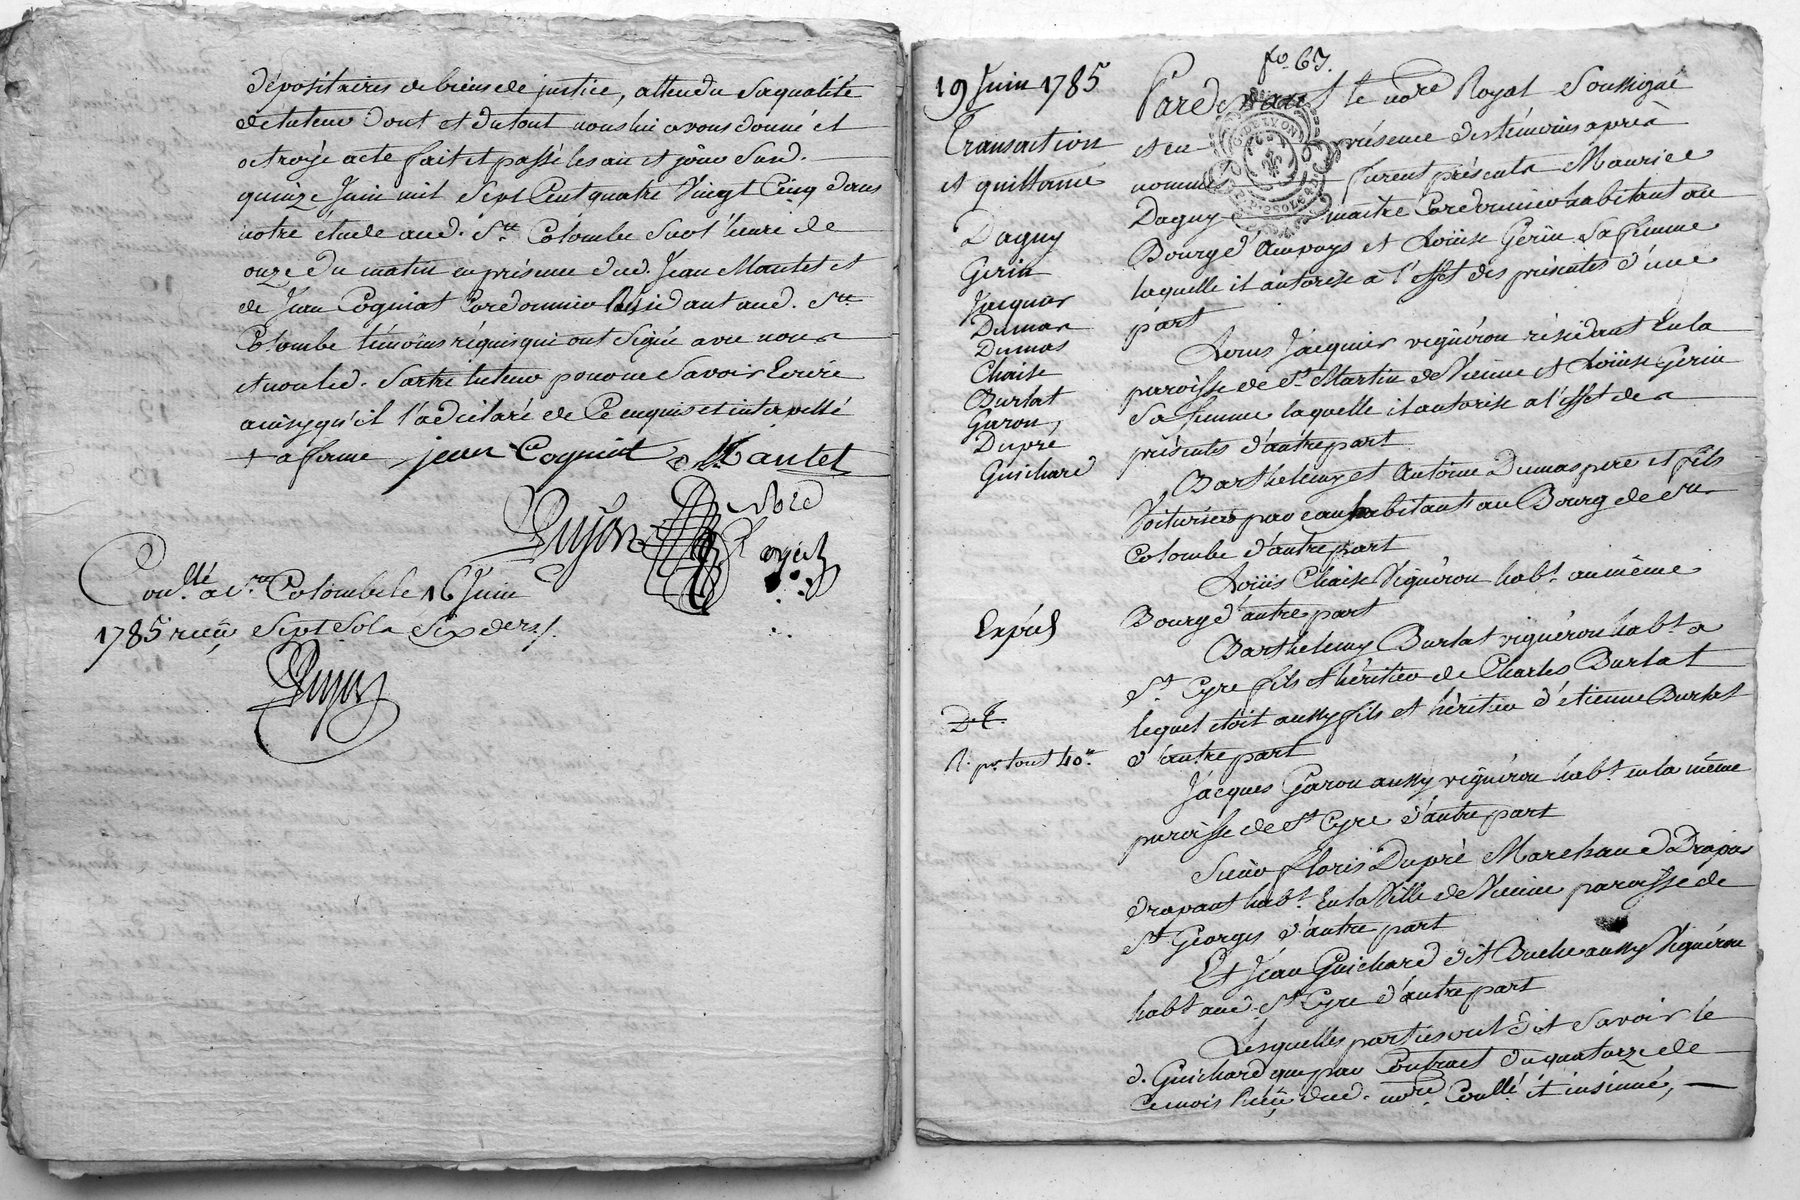 dépositaires de biens de justice, attendu sa qualité
de tuteur dont et du tout nous lui avons donné et
octroyé acte fait et passé les an et jour sud.
quinze Juin mil Sept Cent quatre Vingt Cinq dans
notre étude aud. Ste Colombe sur l'heure de
onze du matin en présence dud. Jean Mantet et
de Jean Cogniat Cordonnier Résidant aud. Ste
Colombe témoins réquis qui ont Signé avec nous
et non led. Sartre tuteur pour ne Savoir Ecrire
ainsy qu'il l'a déclaré de Ce enquis et interpellé
+ a ferme jean Cogniat Mantet
Dujon nore
Royal
Conllé a Ste Colombe le 16 Juin
1785 reçu Sept Sols Six ders/.
Dujon
fo 67.
19 Juin 1785
Transaction
et quittance
Daguy
Gerin
Jacquier
Dumas
Dumas
Chaise
Burlat
Garon,
Dupré
Guichard
Expéd
D. E.
R. pr tout 40s
G. DE LYON
Pardevant le nore Royal Soussigné
et en présence des témoins après
nommés furent présents Maurice
Daguy maitre Cordonnier habitant au
Bourg d'Ampuys et Loüise Gerin Sa femme
laquelle il autorise à l'effet des présentes d'une
part
Louis Jacquier vigneron résidant En la
paroisse de St Martin de Vienne et Loüise Gerin
Sa femme laquelle il autorise a l'effet des
présentes d'autre part
Barthelemy et Antoine Dumas pere et fils
Voituriers par eau habitants au Bourg de Ste
Colombe d'autre part
Loüis Chaise Vigneron habt. au même
Bourg d'autre part
Barthelemy Burlat vigneron habt. a
St Cyre fils et héritier de Charles Burlat
lequel etoit aussy fils et héritier d'etienne Burlat
d'autre part
Jacques Garon aussy vigneron habt. en la même
paroisse de St Cyre d'autre part
Sieur floris Dupré Marchand Drapier
drapant habt. En la Ville de Vienne paroisse de
St Georges d'autre part
Et Jean Guichard dit Buche aussy Vigneron
habt aud. St Cyre d'autre part
Lesquelles parties ont dit Savoir le
d. Guichard que par Contract du quatorze de
Ce mois Reçu dud. nore Conllé et insinué,